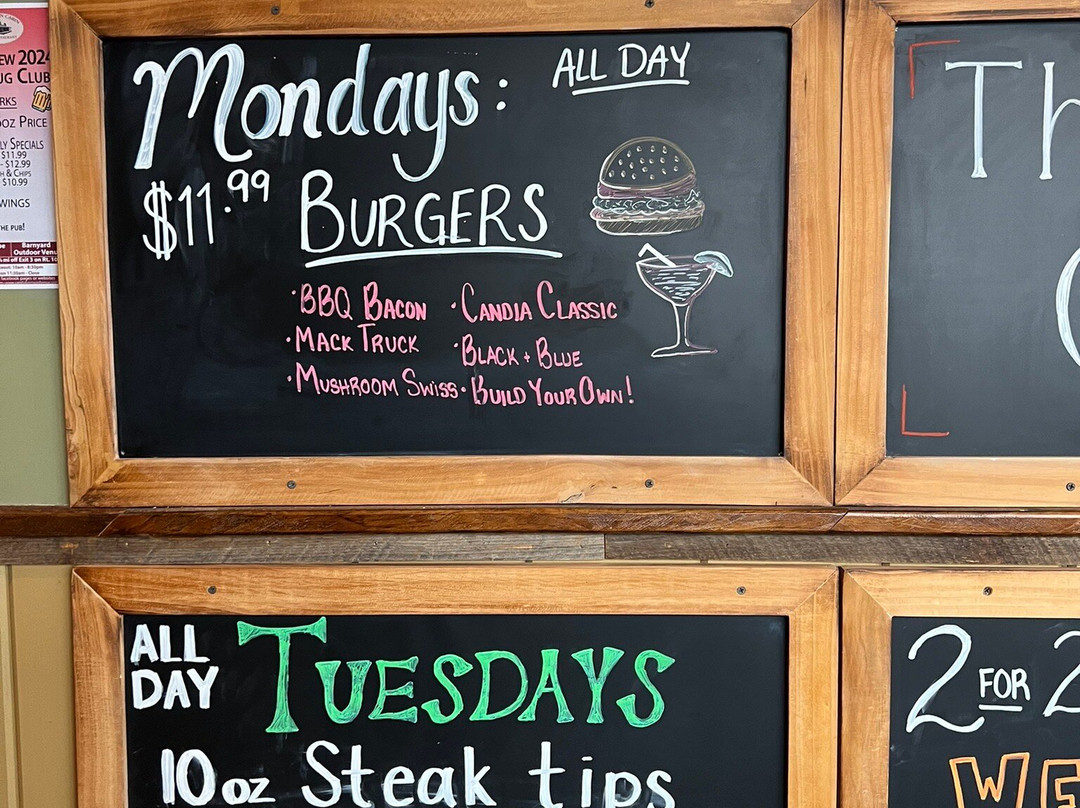 EW 2024
UG CLUB
RKS
OZ PRICE
LY SPECIALS
$11.99
- $12.99
H & CHIPS
$10.99
WINGS
THE PUB!
Barnyard
Outdoor Venu
Mondays:
ALL DAY
$11.99 BURGERS
·BBQ BACON ·CANDIA CLASSIC
·MACK TRUCK ·BLACK + BLUE
·MUSHROOM SWISS ·BUILD YOUR OWN!
Th
ALL DAY
TUESDAYS
10oz Steak tips
2 FOR 2
WE